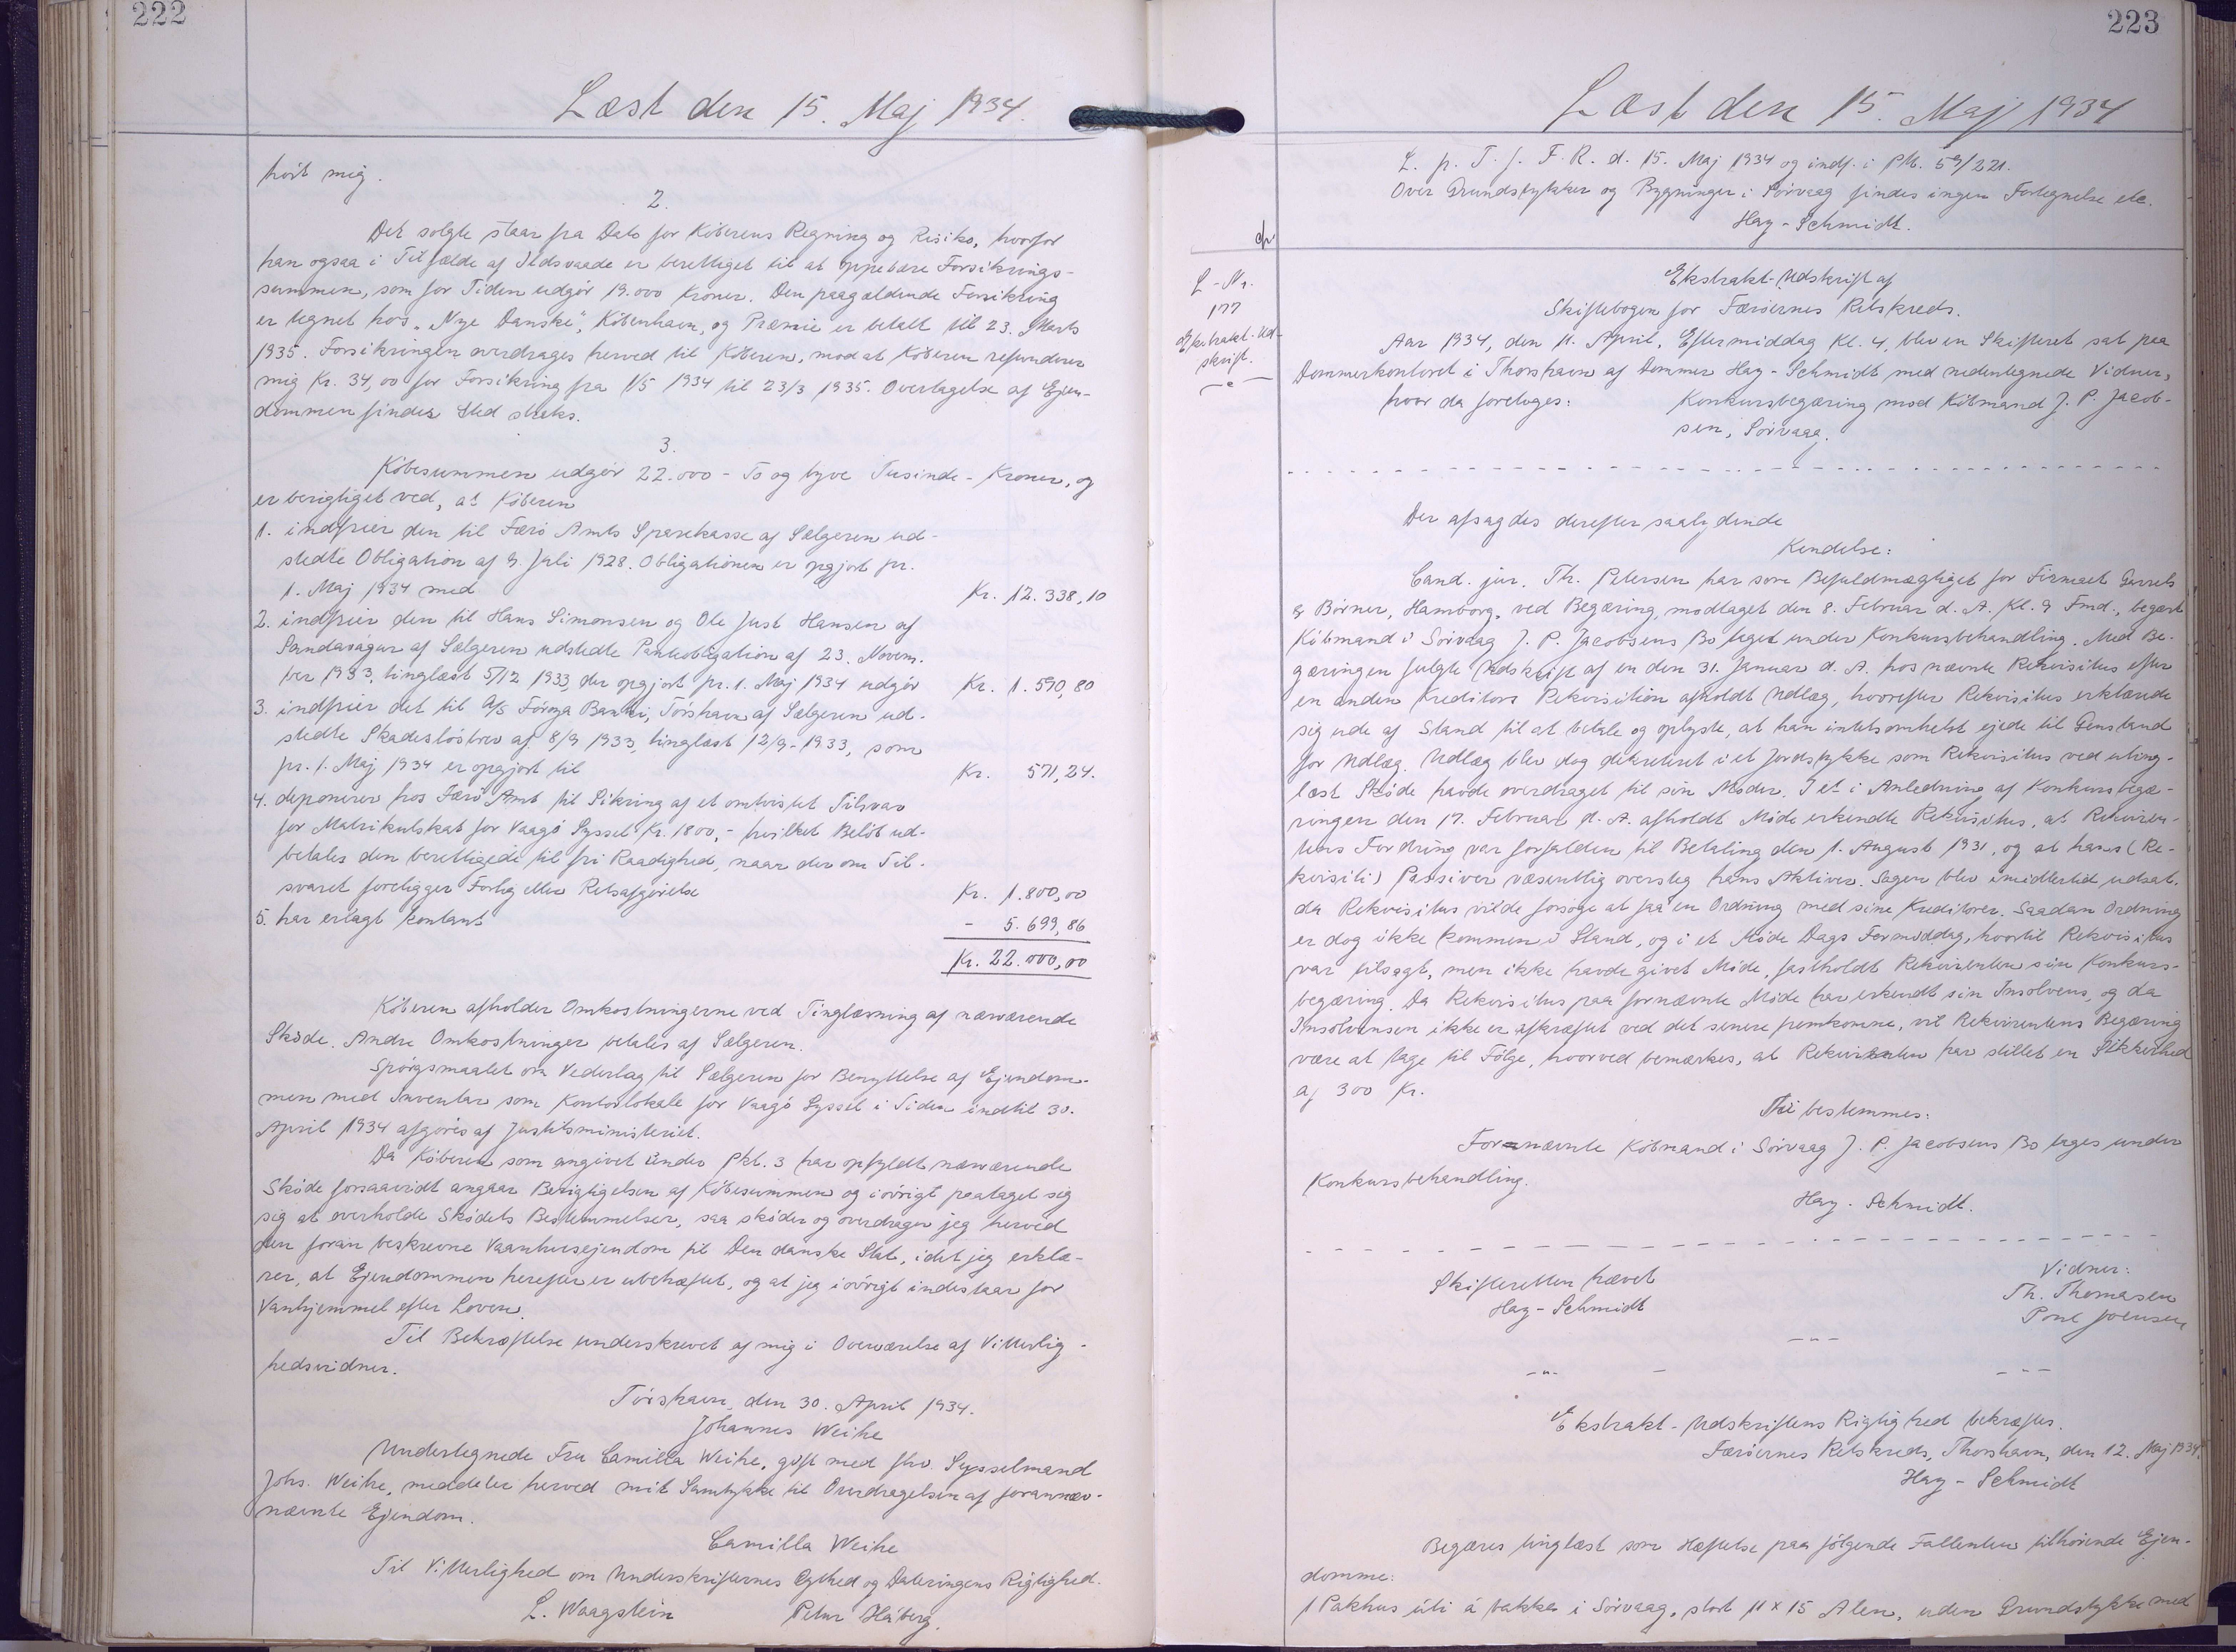 222
Læst den 15. Maj 1934.
hört mig.
2.
Det solgte staar fra Dato for Köberens Regning og Risiko, hvorfor
han ogsaa i Tilfælde af Ildsvaade er berettiget til at oppebære Forsikrings-
summen, som for Tiden udgör 19.000 Kroner. Den paagældende Forsikring
er tegnet hos "Nye Danske", Köbenhavn, og Præmie er betalt til 23. Marts
1935. Forsikringen overdrages herved til Köberen, mod at Köberen refunderer
mig Kr. 34,00 for Forsikring fra 1/5 1934 til 23/3 1935. Overtagelse af Ejen-
dommen finder Sted straks.
3.
Köbesummen udgör 22.000 - To og tyve Tusinde - Kroner, og
er berigtiget ved, at Köberen
1. indfrier den til Færö Amts Sparekasse af Sælgeren ud-
stedte Obligation af 9. Juli 1928. Obligationen er opgjort pr.
1. Maj 1934 med Kr. 12.338,10
2. indfrier den til Hans Simonsen og Ole Just Hansen af
Sandavágur af Sælgeren udstedte Panteobligation af 23. Novem-
ber 1933, tinglæst 5/12 1933, der opgjort pr. 1. Maj 1934 udgör Kr. 1.590,80
3. indfrier det til A/S Föroya Banki, Tórshavn af Sælgeren ud-
stedte Skadeslösbrev af 8/9 1933, tinglæst 12/9-1933, som
pr. 1. Maj 1934 er opgjort til Kr. 571,24.
4. deponerer hos Færö Amt til Sikring af et omtvistet Tilsvar
for Matrikulskat for Vaagö Syssel Kr. 1800,- hvilket Belöb ud-
betales den berettigede til fri Raadighed, naar der om Til-
svaret foreligger Forlig eller Retsafgörelse Kr. 1.800,00
5. har erlagt kontant - 5.699,86
Kr. 22.000,00
Köberen afholder Omkostningerne ved Tinglæsning af nærværende
Sköde. Andre Omkostninger betales af Sælgeren.
Spörgsmaalet om Vederlag til Sælgeren for Benyttelse af Ejendom-
men med Inventar som Kontorlokale for Vaagö Syssel i Tiden indtil 30.
April 1934 afgöres af Justitsministeriet.
Da Köberen som angivet under Pkt. 3 har opfyldt nærværende
Sköde forsaavidt angaar Berigtigelsen af Köbesummen og iövrigt paataget sig
sig at overholde Sködets Bestemmelser, saa sköder og overdrager jeg herved
den foran beskrevne Vaanhusejendom til Den danske Stat, idet jeg erklæ-
rer, at Ejendommen herefter er ubehæftet, og at jeg iövrigt indestaar for
Vanhjemmel efter Loven.
Til Bekræftelse underskrevet af mig i Overværelse af Vitterlig-
hedsvidner.
Tórshavn, den 30. April 1934.
Johannes Weihe
Undertegnede Fru Camilla Weihe, gift med fhv. Sysselmand
Johs. Weihe, meddeler herved mit Samtykke til Overdragelsen af forannæv-
nævnte Ejendom.
Camilla Weihe
Til Vitterlighed om Underskrifternes Ægthed og Dateringens Rigtighed.
L. Waagstein Petur Háberg.
223
Læst den 15. Maj 1934
L. p. T. f. F. R. d. 15. Maj 1934 og indf. i PM. 59/221.
Over Grundstykker og Bygninger i Sörvaag findes ingen Fortegnelse etc.
Hay-Schmidt.
L-Nr.
177
Ekstrakt-Ud-
skrift.
Ekstrakt-Udskrift af
Skiftebogen for Færöernes Retskreds.
Aar 1934, den 11. April, Eftermiddag Kl. 4, blev en Skifteret sat paa
Dommerkontoret i Thorshavn af Dommer Hay-Schmidt med nedentegnede Vidner,
hvor da foretoges: Konkursbegæring mod Köbmand J. P. Jacob-
sen, Sörvaag.
Der afsagdes derefter saalydende
Kendelse:
Cand. jur. Th. Petersen har som Befuldmægtiget for Firmaet Garrels
& Börner, Hamborg, ved Begæring, modtaget den 8. Februar d. A. Kl. 9 Fmd., begært
Köbmand i Sörvaag J. P. Jacobsens Bo taget under Konkursbehandling. Med Be-
gæringen fulgte Udskrift af en den 31. Januar d. A. hos nævnte Rekvisitus efter
en anden Kreditors Rekvisition afholdt Udlæg, hvorefter Rekvisitus erklærede
sig ude af Stand til at betale og oplyste, at han intetsomhelst ejede til Genstand
for Udlæg. Udlæg blev dog dekreteret i et Jordstykke som Rekvisitus ved uting-
læst Sköde havde overdraget til sin Moder. I et i Anledning af Konkursbegæ-
ringen den 17. Februar d. A. afholdt Möde erkendte Rekvisitus, at Rekviren-
tens Fordring var forfalden til Betaling den 1. August 1931, og at hans (Re-
kvisiti) Passiver væsentlig oversteg hans Aktiver. Sagen blev imidlertid udsat,
da Rekvisitus vilde forsöge at faa en Ordning med sine Kreditorer. Saadan Ordning
er dog ikke kommen i Stand, og i et Möde Dags Formiddag, hvortil Rekvisitus
var tilsagt, men ikke havde givet Möde, fastholdt Rekvirenten sin Konkurs-
begæring. Da Rekvisitus paa fornævnte Möde har erkendt sin Insolvens, og da
Insolvensen ikke er afkræftet ved det senere fremkomne, vil Rekvirentens Begæring
være at tage til Fölge, hvorved bemærkes, at Rekvirenten har stillet en Sikkerhed
af 300 Kr.
Thi bestemmes:
Fornævnte Köbmand i Sörvaag J. P. Jacobsens Bo tages under
Konkursbehandling.
Hay-Schmidt.
Skifteretten hævet
Hay-Schmidt
Vidner:
Th. Thomasen
Poul Joensen
Ekstrakt-Udskriftens Rigtighed bekræftes.
Færöernes Retskreds, Thorshavn, den 12. Maj 1934.
Hay-Schmidt
Begæres tinglæst som Hæftelse paa fölgende Fallenten tilhörende Ejen-
domme:
1 Pakhus úti á bakka i Sörvaag, stort 11 x 15 Alen, uden Grundstykke med